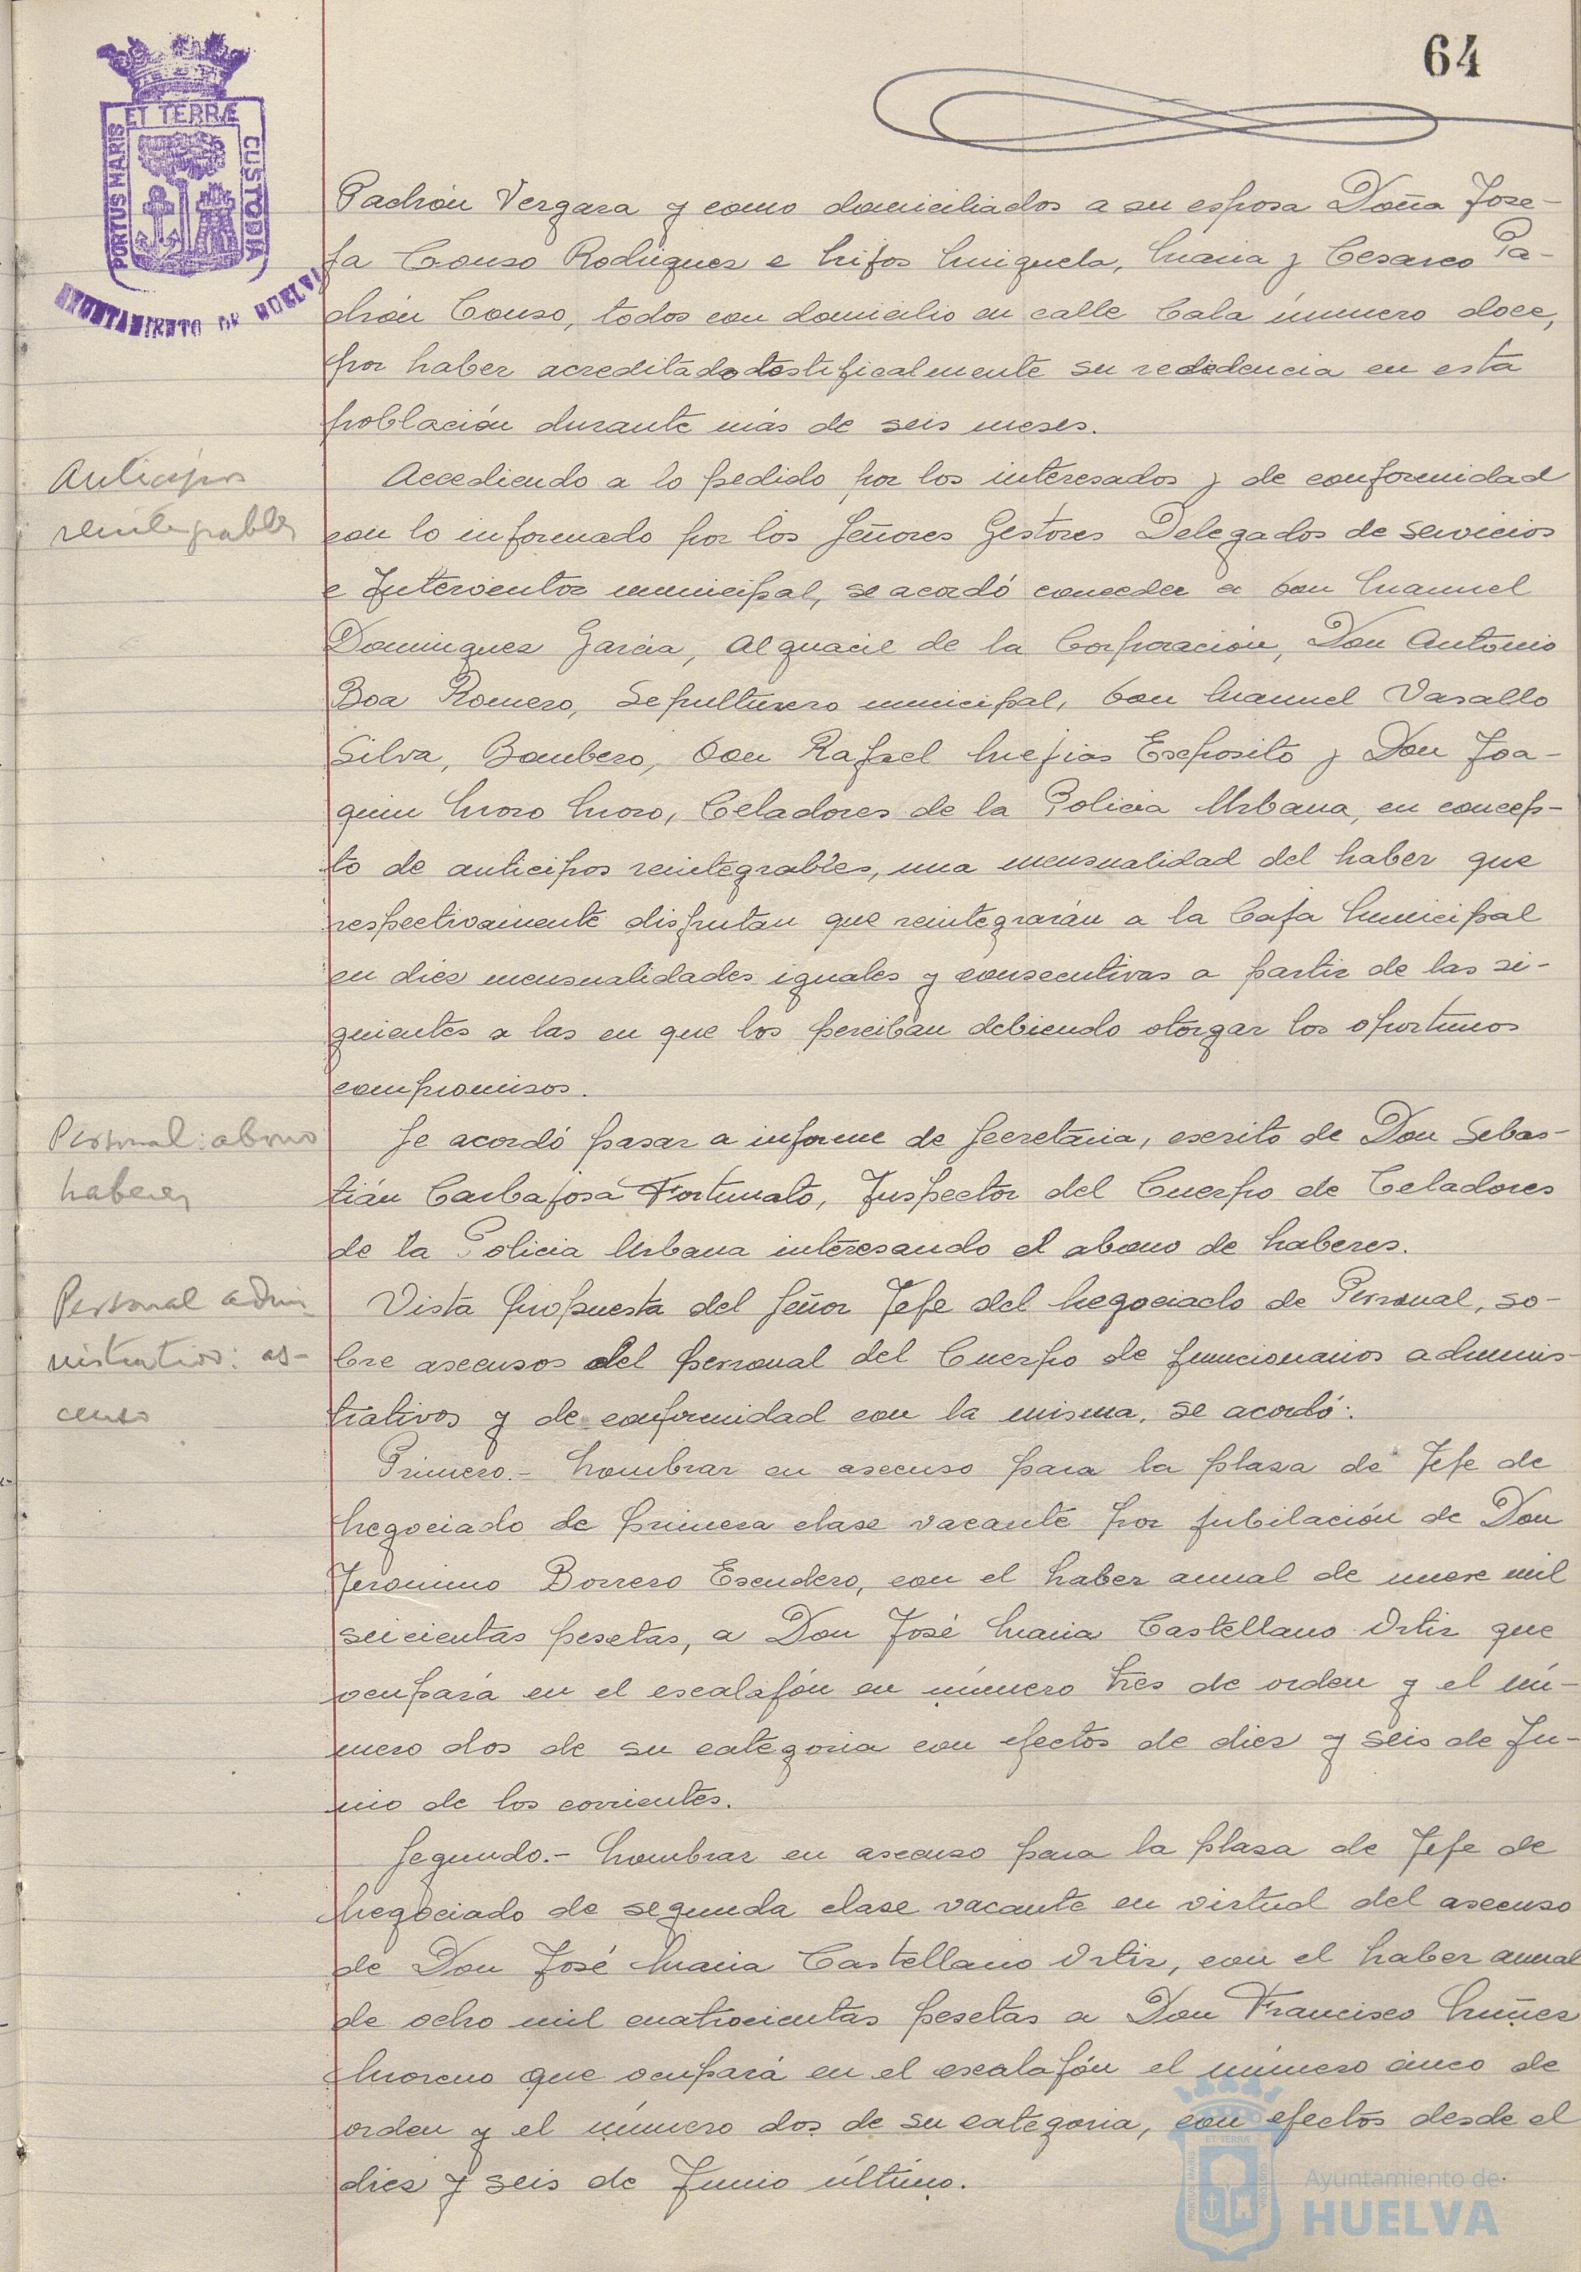 64
ET TERRÆ
PORTUS MARIS
CUSTODIA
AYUNTAMIENTO DE HUELVA
Padrón Vergara y como domiciliados a su esposa Doña Jose-
fa Couso Rodriguez e hijos Miguela, Maria y Cesareo Pa-
drón Couso, todos con domicilio en calle Cala número doce,
por haber acreditado testificalmente su rededencia en esta
población durante más de seis meses.
Anticipos
reintegrables
Accediendo a lo pedido por los interesados y de conformidad
con lo informado por los Señores Gestores Delegados de Servicios
e Interventor municipal, se acordó conceder a Don Manuel
Dominguez Garcia, Alguacil de la Corporación, Don Antonio
Boa Romero, Sepulturero municipal, Don Manuel Vasallo
Silva, Bombero, Don Rafael Mejias Esposito y Don Joa-
quin Moro Moro, Celadores de la Policia Urbana, en concep-
to de anticipos reintegrables, una mensualidad del haber que
respectivamente disfrutan que reintegrarán a la Caja Municipal
en diez mensualidades iguales y consecutivas a partir de las si-
guientes a las en que los perciban debiendo otorgar los oportunos
compromisos.
Personal: abono
haberes
Se acordó pasar a informe de Secretaria, escrito de Don Sebas-
tián Carbajosa Fortunato, Inspector del Cuerpo de Celadores
de la Policia Urbana interesando el abono de haberes.
Personal admi
nistrativo: as-
censo
Vista propuesta del Señor Jefe del Negociado de Personal, so-
bre ascensos del personal del Cuerpo de funcionarios adminis-
trativos y de conformidad con la misma, se acordó:
Primero.- Nombrar en ascenso para la plaza de Jefe de
Negociado de primera clase vacante por jubilación de Don
Jeronimo Borrero Escudero, con el haber anual de nueve mil
seicientas pesetas, a Don José Maria Castellano Ortiz que
ocupará en el escalafón en número tres de orden y el nú-
mero dos de su categoria con efectos de diez y seis de Ju-
nio de los corrientes.
Segundo.- Nombrar en ascenso para la plaza de Jefe de
Negociado de segunda clase vacante en virtud del ascenso
de Don José Maria Castellano Ortiz, con el haber anual
de ocho mil cuatrocientas pesetas a Don Francisco Nuñez
Moreno que ocupará en el escalafón el número cinco de
orden y el número dos de su categoria, con efectos desde el
diez y seis de Junio último.
Ayuntamiento de
HUELVA